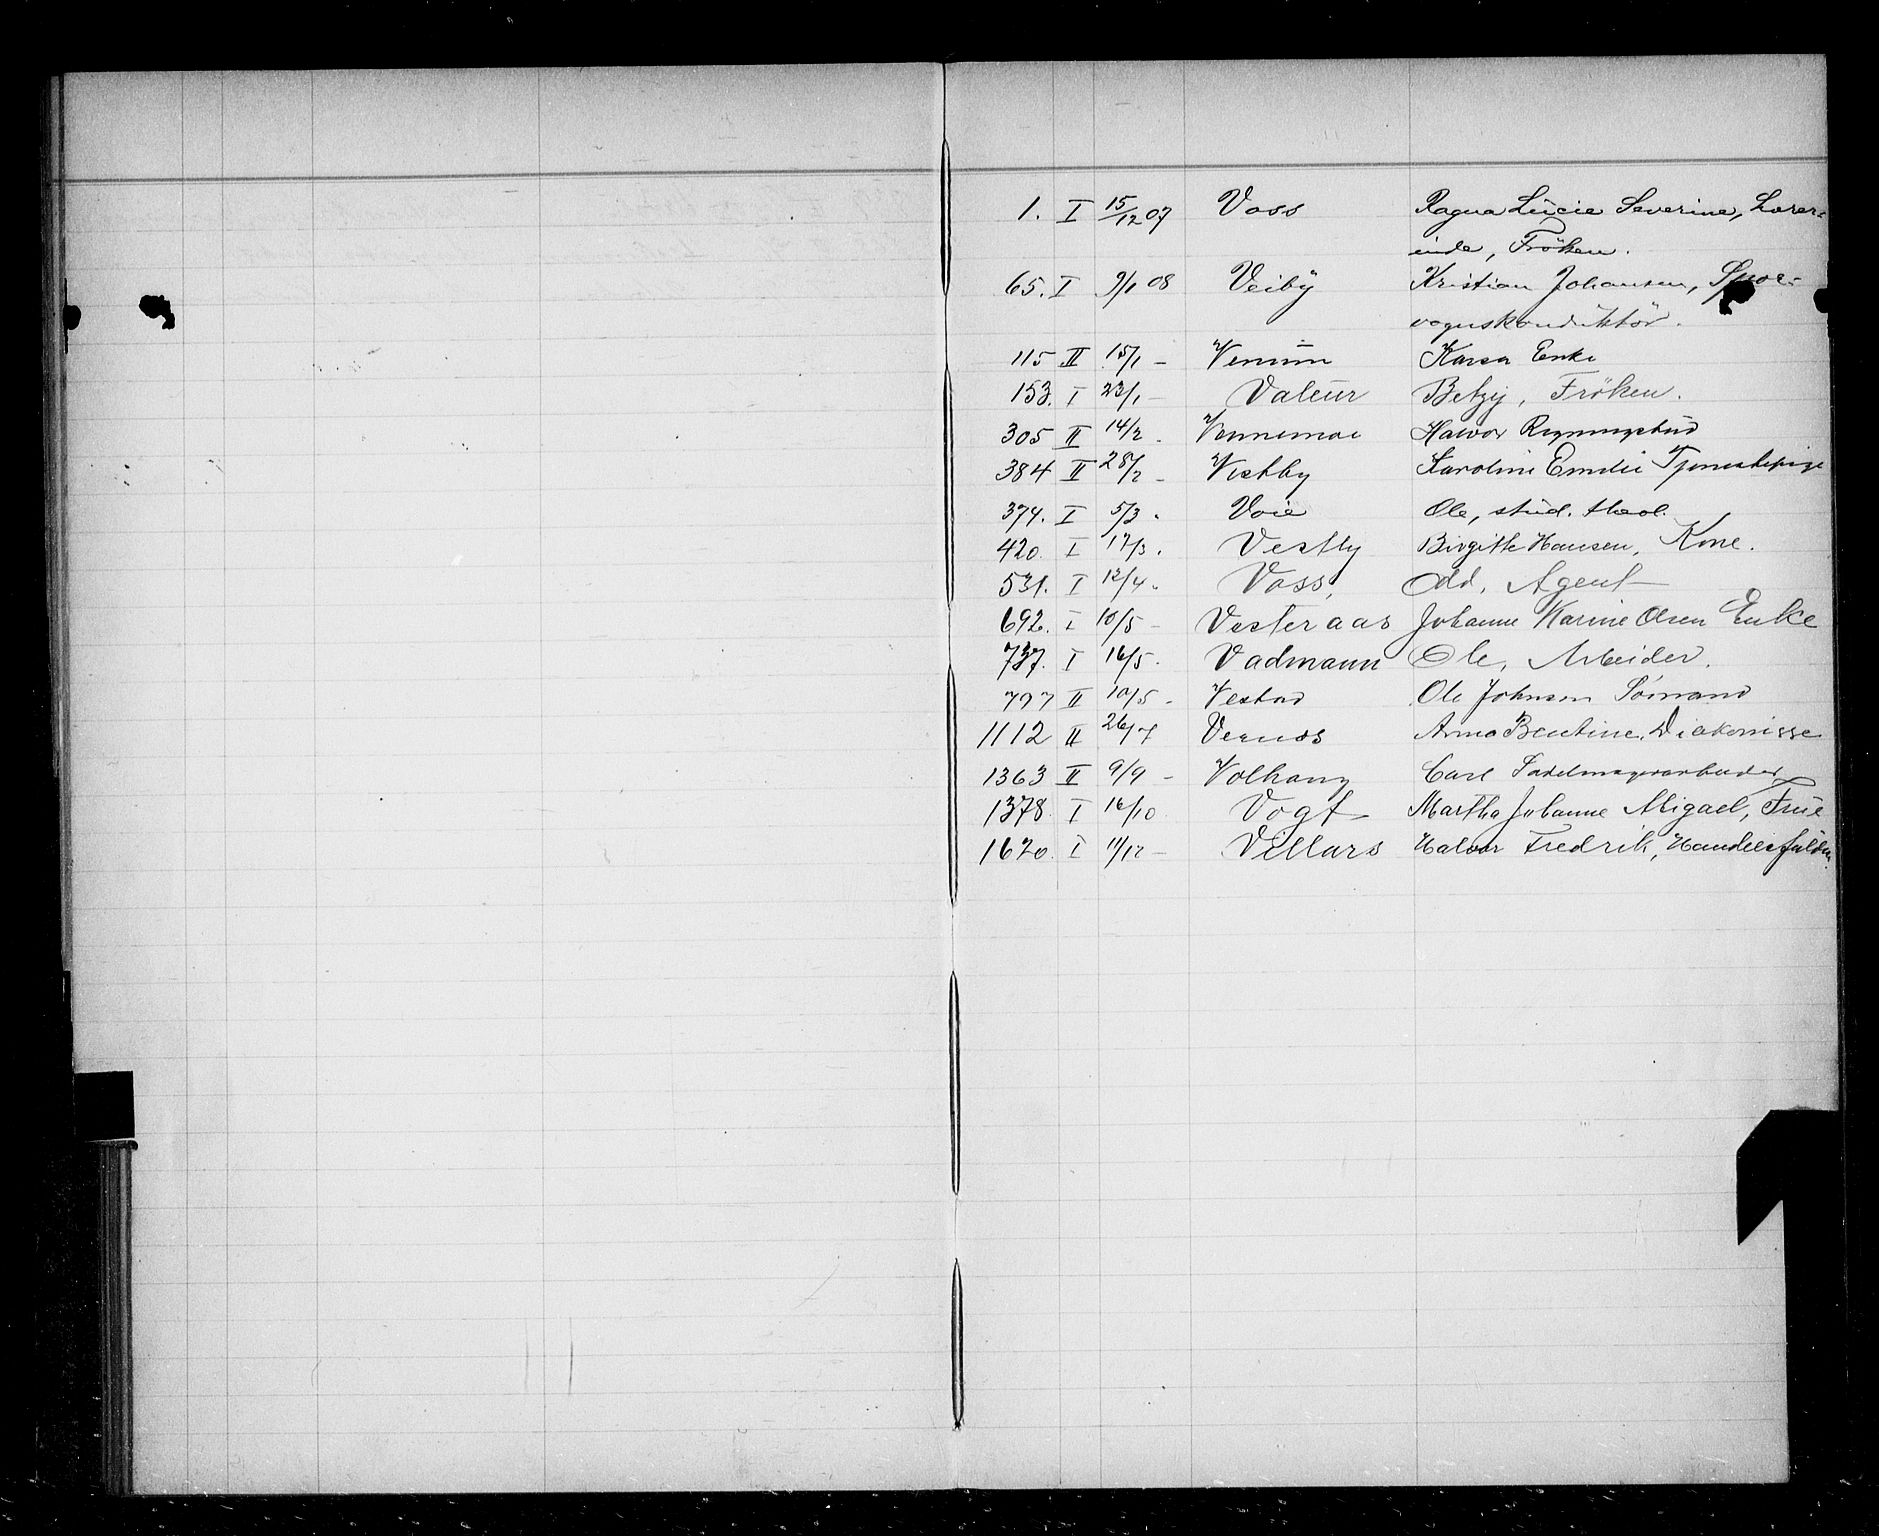 1. I 15/12 07 Voss Ragna Lucie Severine, Lærer-
inde, Fröken.
65. I 9/1 08 Veiby Kristian Johansen, Spor-
vognskonduktör.
115 II 15/1 - Karen Enke
153. I 23/1 - Valeur Betzy, Fröken.
305 II 14/2 - Vennemoe Halvor
384 II 28/2 - Vestby Karoline Emelie Tjenestepige
374. I 5/3 - Voie Ole, stud. theol.
420 I 17/3 - Vestly Birgitte Hansen, Kone.
531. I 12/4 - Voss, Odd, Agent
692. I 10/5 - Vesteraas Johanne Karine Olsen Enke
737. I 16/5 - Vadmann Ole, Arbeider.
797 II 10/5 - Vestad Ole Johnsen Sömand
1112 II 26/7 Vernøs Anna Bentine, Diakonisse
1363 II 9/9 - Carl Sadelmagerarbeider
1378 I 16/10 Vogt Martha Johanne Abigael, Frue
1620. I 11/12 - Villars Halvor Fredrik, Handelsfuldm.